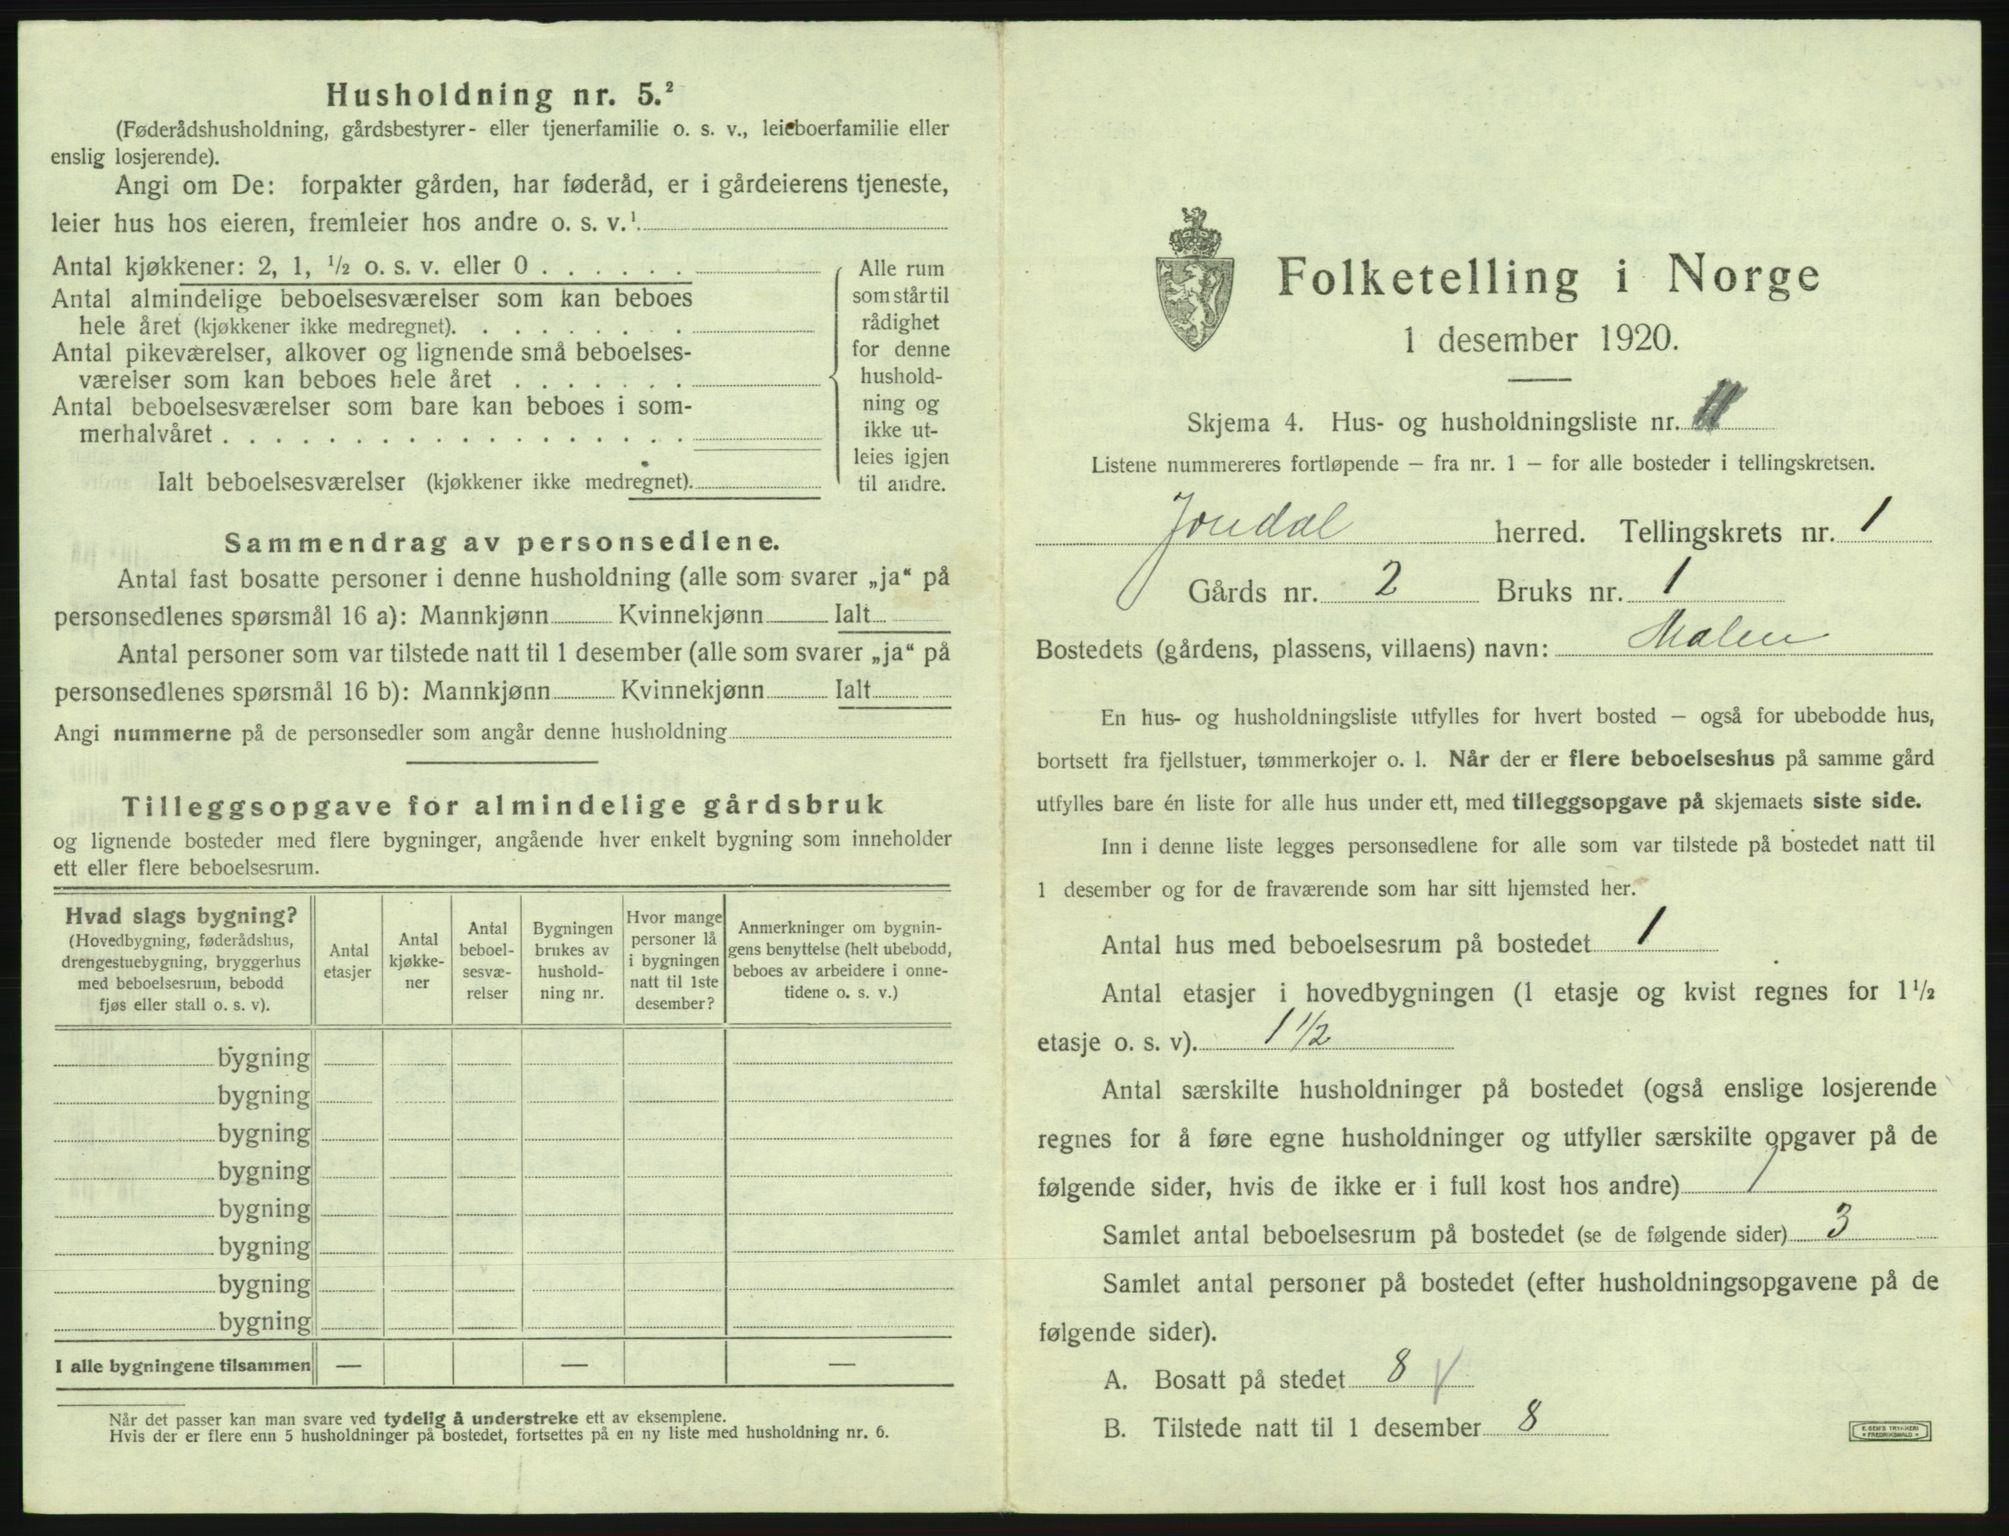 Husholdning nr. 5.²
(Føderådshusholdning, gårdsbestyrer- eller tjenerfamilie o. s. v., leieboerfamilie eller
enslig losjerende).
Angi om De: forpakter gården, har føderåd, er i gårdeierens tjeneste,
leier hus hos eieren, fremleier hos andre o. s. v.¹
Antal kjøkkener: 2, 1, ½ o. s. v. eller 0 . . . . . .
Antal almindelige beboelsesværelser som kan beboes
hele året (kjøkkener ikke medregnet). . . . . . . . .
Antal pikeværelser, alkover og lignende små beboelses-
værelser som kan beboes hele året . . . . . . .
Antal beboelsesværelser som bare kan beboes i som-
merhalvåret . . . . . . . . . . . . . . . . . .
Ialt beboelsesværelser (kjøkkener ikke medregnet).
Alle rum
som står til
rådighet
for denne
hushold-
ning og
ikke ut-
leies igjen
til andre.
Sammendrag av personsedlene.
Antal fast bosatte personer i denne husholdning (alle som svarer „ja“ på
personsedlenes spørsmål 16 a): Mannkjønn Kvinnekjønn Ialt
Antal personer som var tilstede natt til 1 desember (alle som svarer „ja“ på
personsedlenes spørsmål 16 b): Mannkjønn Kvinnekjønn Ialt
Angi nummerne på de personsedler som angår denne husholdning
Tilleggsopgave for almindelige gårdsbruk
og lignende bosteder med flere bygninger, angående hver enkelt bygning som inneholder
ett eller flere beboelsesrum.
Hvad slags bygning?
(Hovedbygning, føderådshus,
drengestuebygning, bryggerhus
med beboelsesrum, bebodd
fjøs eller stall o. s. v).
Antal
etasjer
Antal
kjøkke-
ner
Antal
beboel-
sesvæ-
relser
Bygningen
brukes av
hushold-
ning nr.
Hvor mange
personer lå
i bygningen
natt til 1ste
desember?
Anmerkninger om bygnin-
gens benyttelse (helt ubebodd,
beboes av arbeidere i onne-
tidene o. s. v.)
bygning
bygning
bygning
bygning
bygning
bygning
bygning
bygning
I alle bygningene tilsammen — — —
Når det passer kan man svare ved tydelig å understreke ett av eksemplene.
Hvis der er flere enn 5 husholdninger på bostedet, fortsettes på en ny liste med husholdning nr. 6.
Folketelling i Norge
1 desember 1920.
Skjema 4. Hus- og husholdningsliste nr.
Listene nummereres fortløpende – fra nr. 1 – for alle bosteder i tellingskretsen.
Jondal herred. Tellingskrets nr. 1
Gårds nr. 2 Bruks nr. 1
Bostedets (gårdens, plassens, villaens) navn: Malen
En hus- og husholdningsliste utfylles for hvert bosted – også for ubebodde hus,
bortsett fra fjellstuer, tømmerkojer o. l. Når der er flere beboelseshus på samme gård
utfylles bare én liste for alle hus under ett, med tilleggsopgave på skjemaets siste side.
Inn i denne liste legges personsedlene for alle som var tilstede på bostedet natt til
1 desember og for de fraværende som har sitt hjemsted her.
Antal hus med beboelsesrum på bostedet 1
Antal etasjer i hovedbygningen (1 etasje og kvist regnes for 1½
etasje o. s. v). 1 1/2
Antal særskilte husholdninger på bostedet (også enslige losjerende
regnes for å føre egne husholdninger og utfyller særskilte opgaver på de
følgende sider, hvis de ikke er i full kost hos andre) 1
Samlet antal beboelsesrum på bostedet (se de følgende sider) 3
Samlet antal personer på bostedet (efter husholdningsopgavene på de
følgende sider).
A. Bosatt på stedet 8
B. Tilstede natt til 1 desember 8